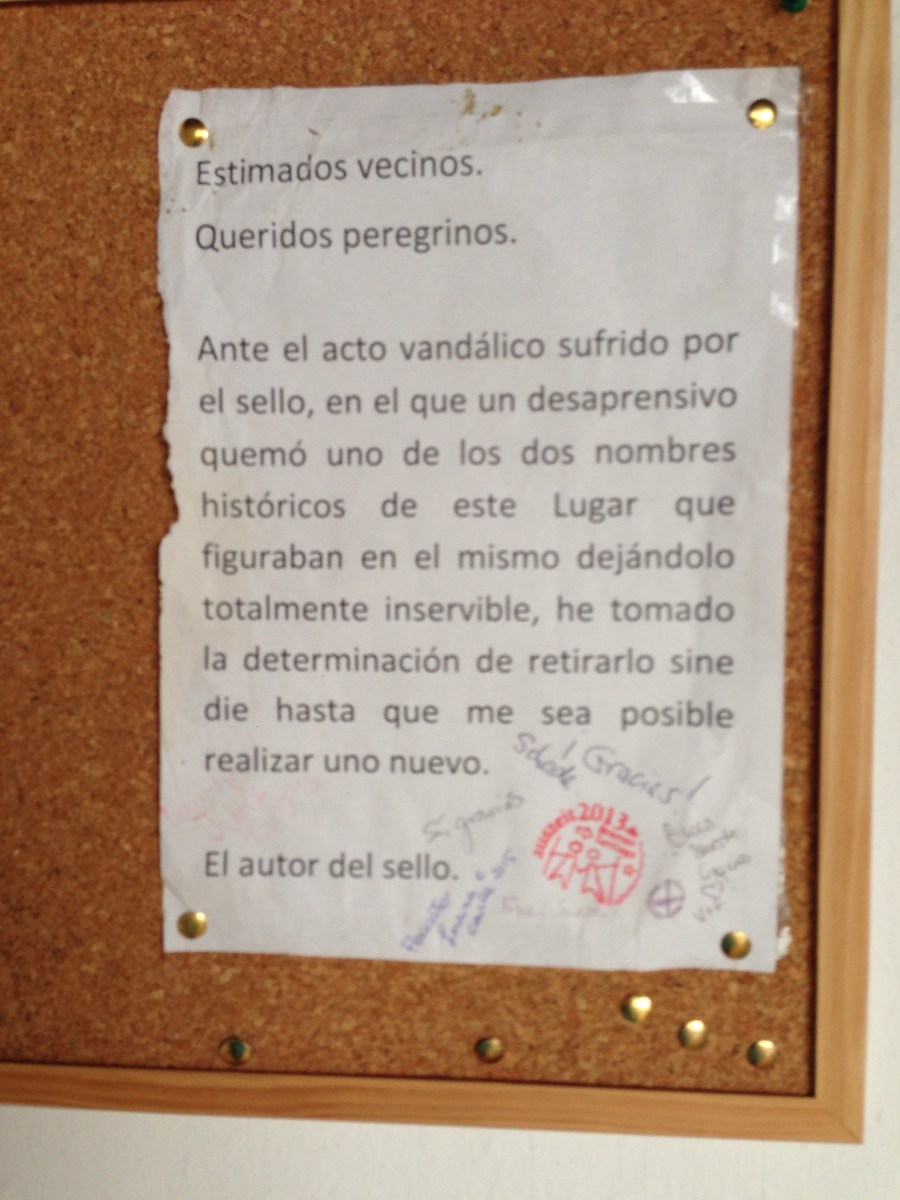 Estimados vecinos.
Queridos peregrinos.
Ante el acto vandálico sufrido por
el sello, en el que un desaprensivo
quemó uno de los dos nombres
históricos de este Lugar que
figuraban en el mismo dejándolo
totalmente inservible, he tomado
la determinación de retirarlo sine
die hasta que me sea posible
realizar uno nuevo.
Schade
! Gracias!
Sí, gracias
auszeit 2013
El autor del sello.